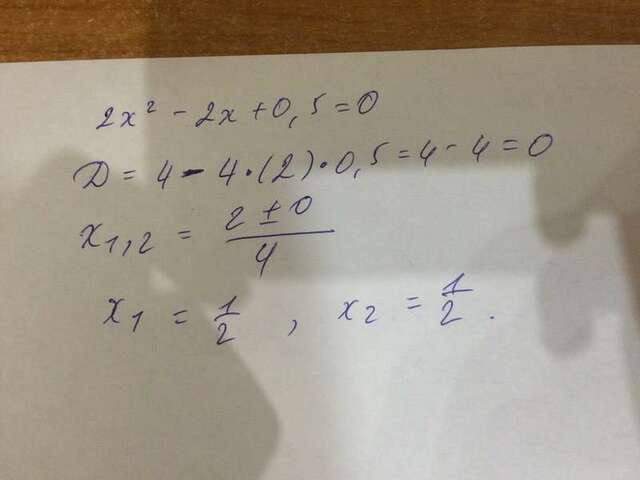 2x² - 2x + 0,5 = 0
D = 4 - 4·(2)·0,5 = 4 - 4 = 0
x₁,₂ = (2 ± 0)/4
x₁ = 1/2 , x₂ = 1/2 .